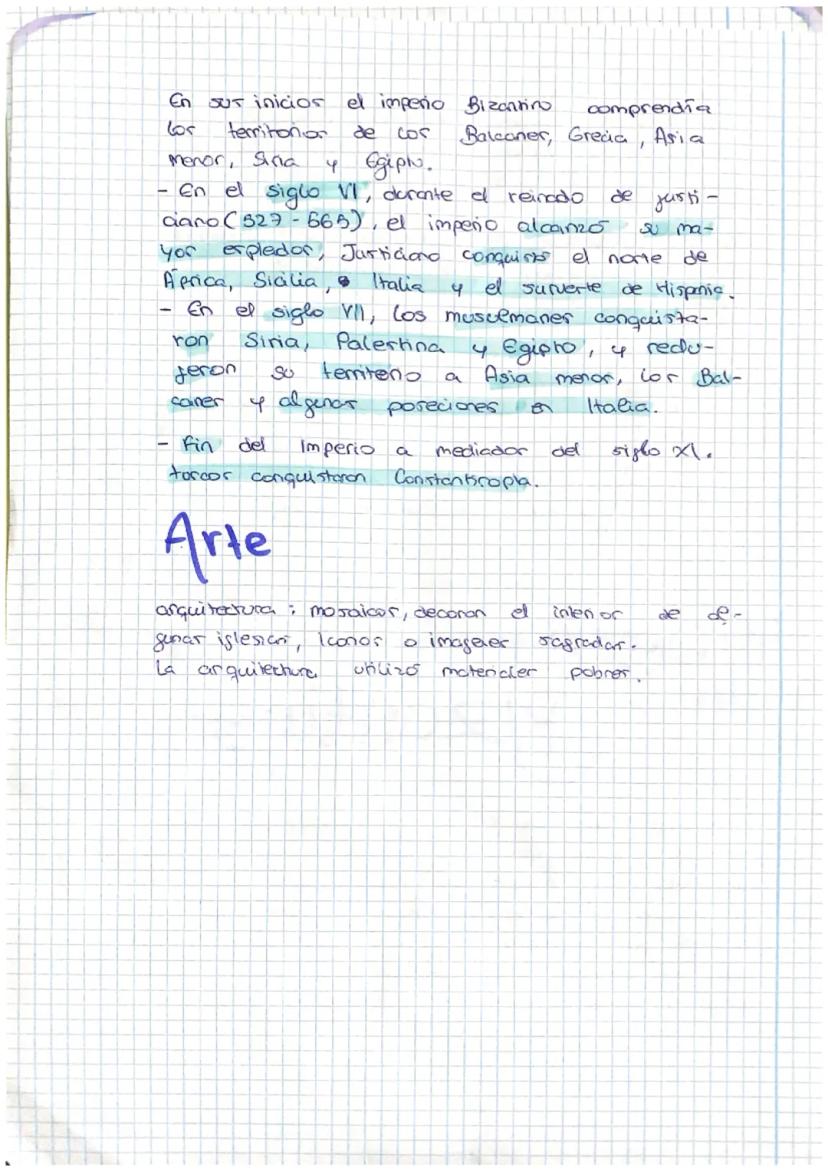 En sus inicios el imperio Bizantino comprendía
los territorios de los Balcanes, Grecia, Asia
menor, Siria y Egipto.
- En el siglo VI, durante el reinado de justi-
ciano (527 - 565), el imperio alcanzó su ma-
yor espledor, Justiciano conquisto el norte de
África, Sicilia, Italia y el suruerte de Hispania.
- En el siglo VII, los musulmanes conquista-
ron Siria, Palestina y Egipto, y redu-
jeron su territerio a Asia menor, los Bal-
canes y algunas poseciones en Italia.
- Fin del Imperio a mediados del siglo XI.
turcos conquistaron Constantinopla.
Arte
arquitectura: mosaicos, decoran el interior de al-
gunas iglesias, Iconos o imagenes sagradas.
La arquitectura utilizó materiales pobres.